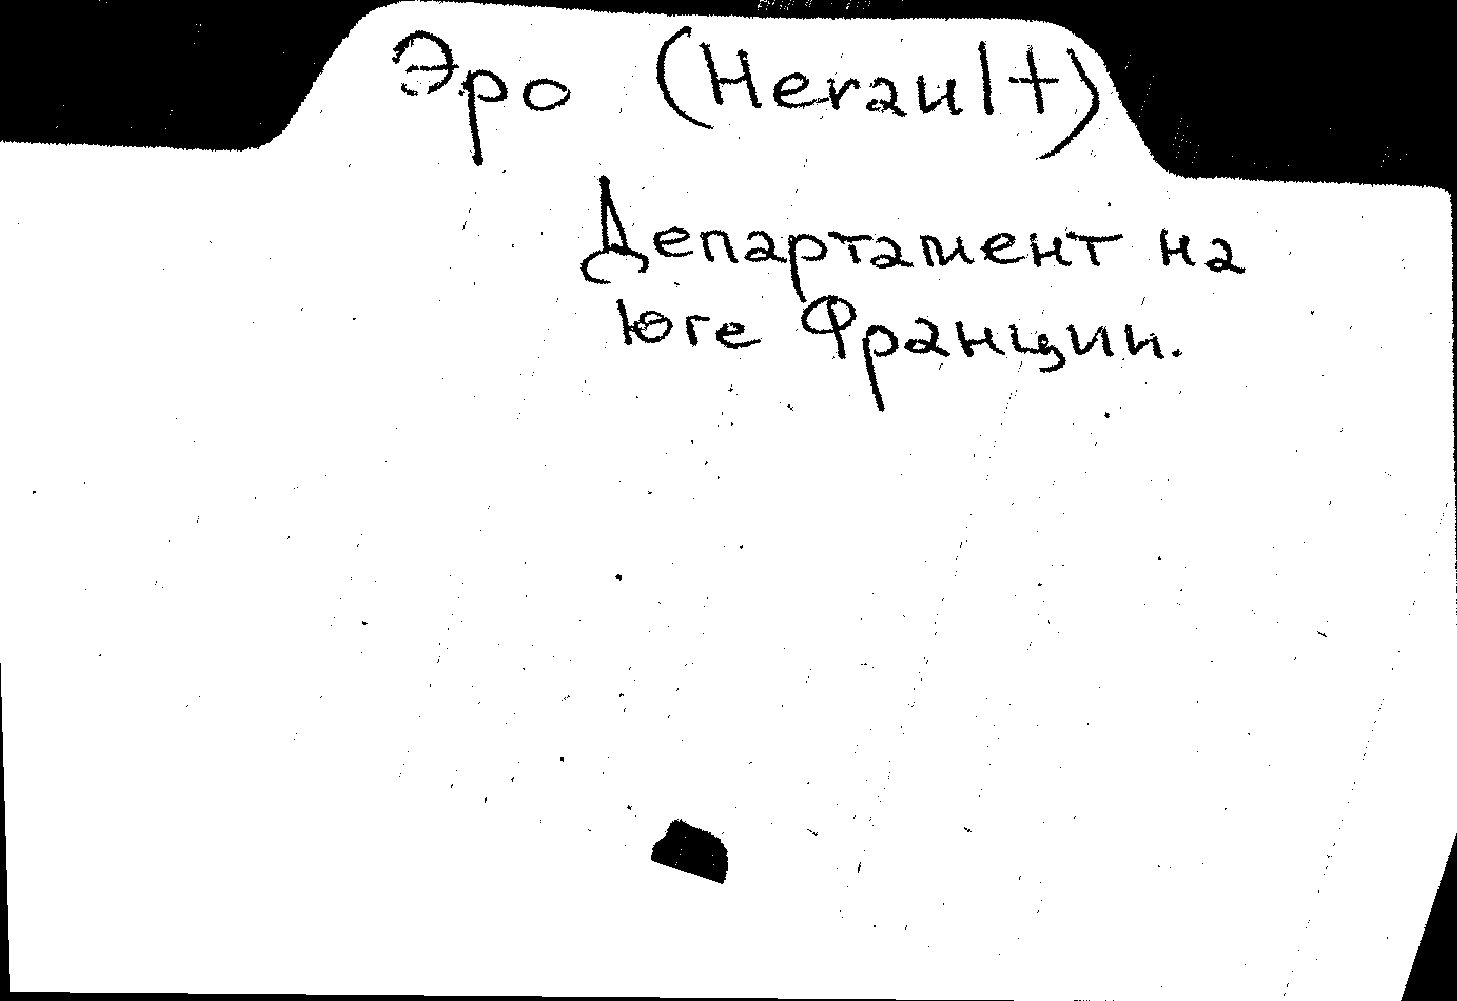 Эро (Herault)
Департамент на
юге Франции.